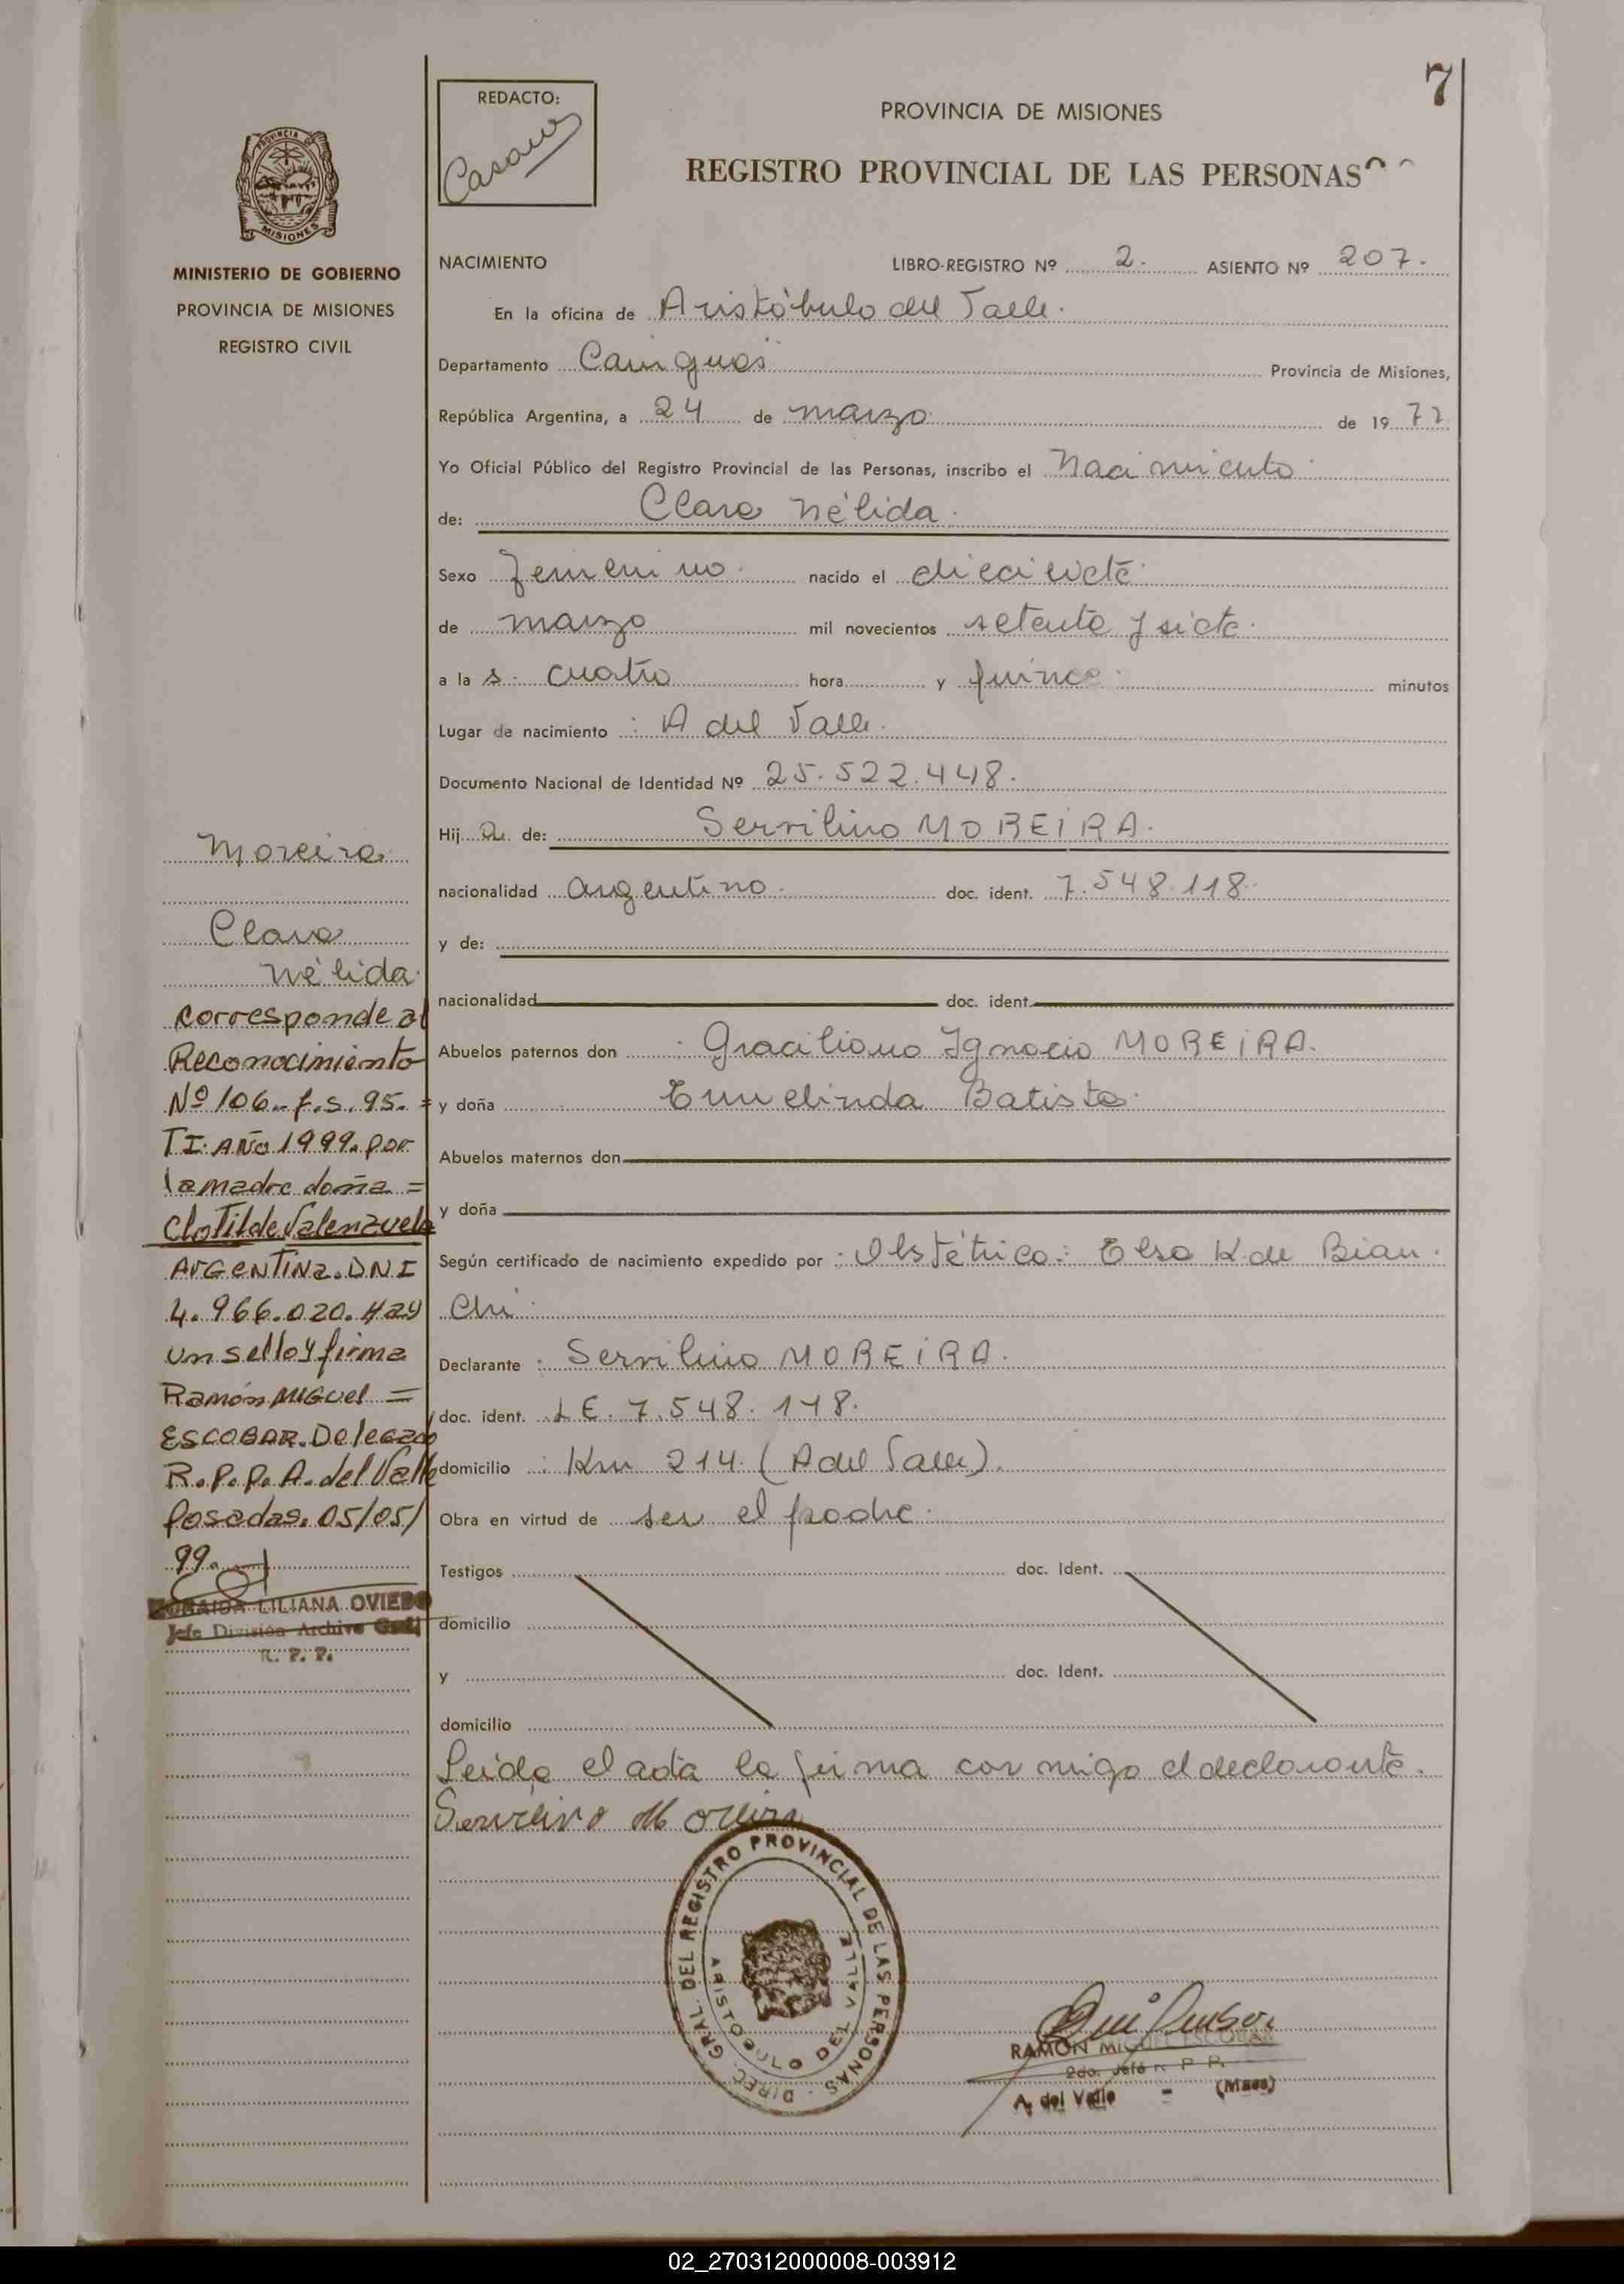 7
REDACTO:
PROVINCIA DE MISIONES
REGISTRO PROVINCIAL DE LAS PERSONAS
PROVINCIA
MISIONES
MINISTERIO DE GOBIERNO
PROVINCIA DE MISIONES
REGISTRO CIVIL
NACIMIENTO LIBRO-REGISTRO Nº 2. ASIENTO Nº 207.
En la oficina de Aristóbulo del Valle.
Departamento Cainguás Provincia de Misiones,
República Argentina, a 24 de marzo de 1977
Yo Oficial Público del Registro Provincial de las Personas, inscribo el Nacimiento
de: Clara Nélida.
Sexo Femenino. nacido el diecisiete
de marzo mil novecientos setenta y siete.
a la s. cuatro hora y quince minutos
Lugar de nacimiento : A del Valle.
Documento Nacional de Identidad Nº 25.522.448.
Hij a de: Servilino MOREIRA.
nacionalidad argentino. doc. ident. 7.548.118.
y de:
nacionalidad doc. ident.
Abuelos paternos don : Graciliano Ignacio MOREIRA.
y doña Ermelinda Batista.
Abuelos maternos don
y doña
Según certificado de nacimiento expedido por : Obstétrica: Elsa K. de Bian-
chi
Declarante : Servilino MOREIRA.
doc. ident. L E. 7.548.118.
domicilio : Km 214. (A del Valle).
Obra en virtud de ser el padre.
Testigos doc. Ident.
domicilio
y doc. Ident.
domicilio
Leída el acta la firma conmigo el declarante.
Servilino Moreira
Moreira
Clara
Nélida.
corresponde al
Reconocimiento
Nº 106-f.s. 95.=
T I. AÑO 1999. por
la madre doña =
Clotilde Valenzuela
ARGENTINA. DNI
4.966.020. Hay
un sello y firma
Ramón MIGUEL =
ESCOBAR. Delegado
R.P.P. A. del Valle
Posadas. 05/05/
99.
LILIANA OVIEDO
Jefe División Archivo Gral
R. P. P.
DIREC. GRAL. DEL REGISTRO PROVINCIAL DE LAS PERSONAS
ARISTOBULO DEL VALLE
RAMON MIGUEL ESCOBAR
2do. Jefe R. P. P.
A. del Valle - (Mnes)
02_270312000008-003912